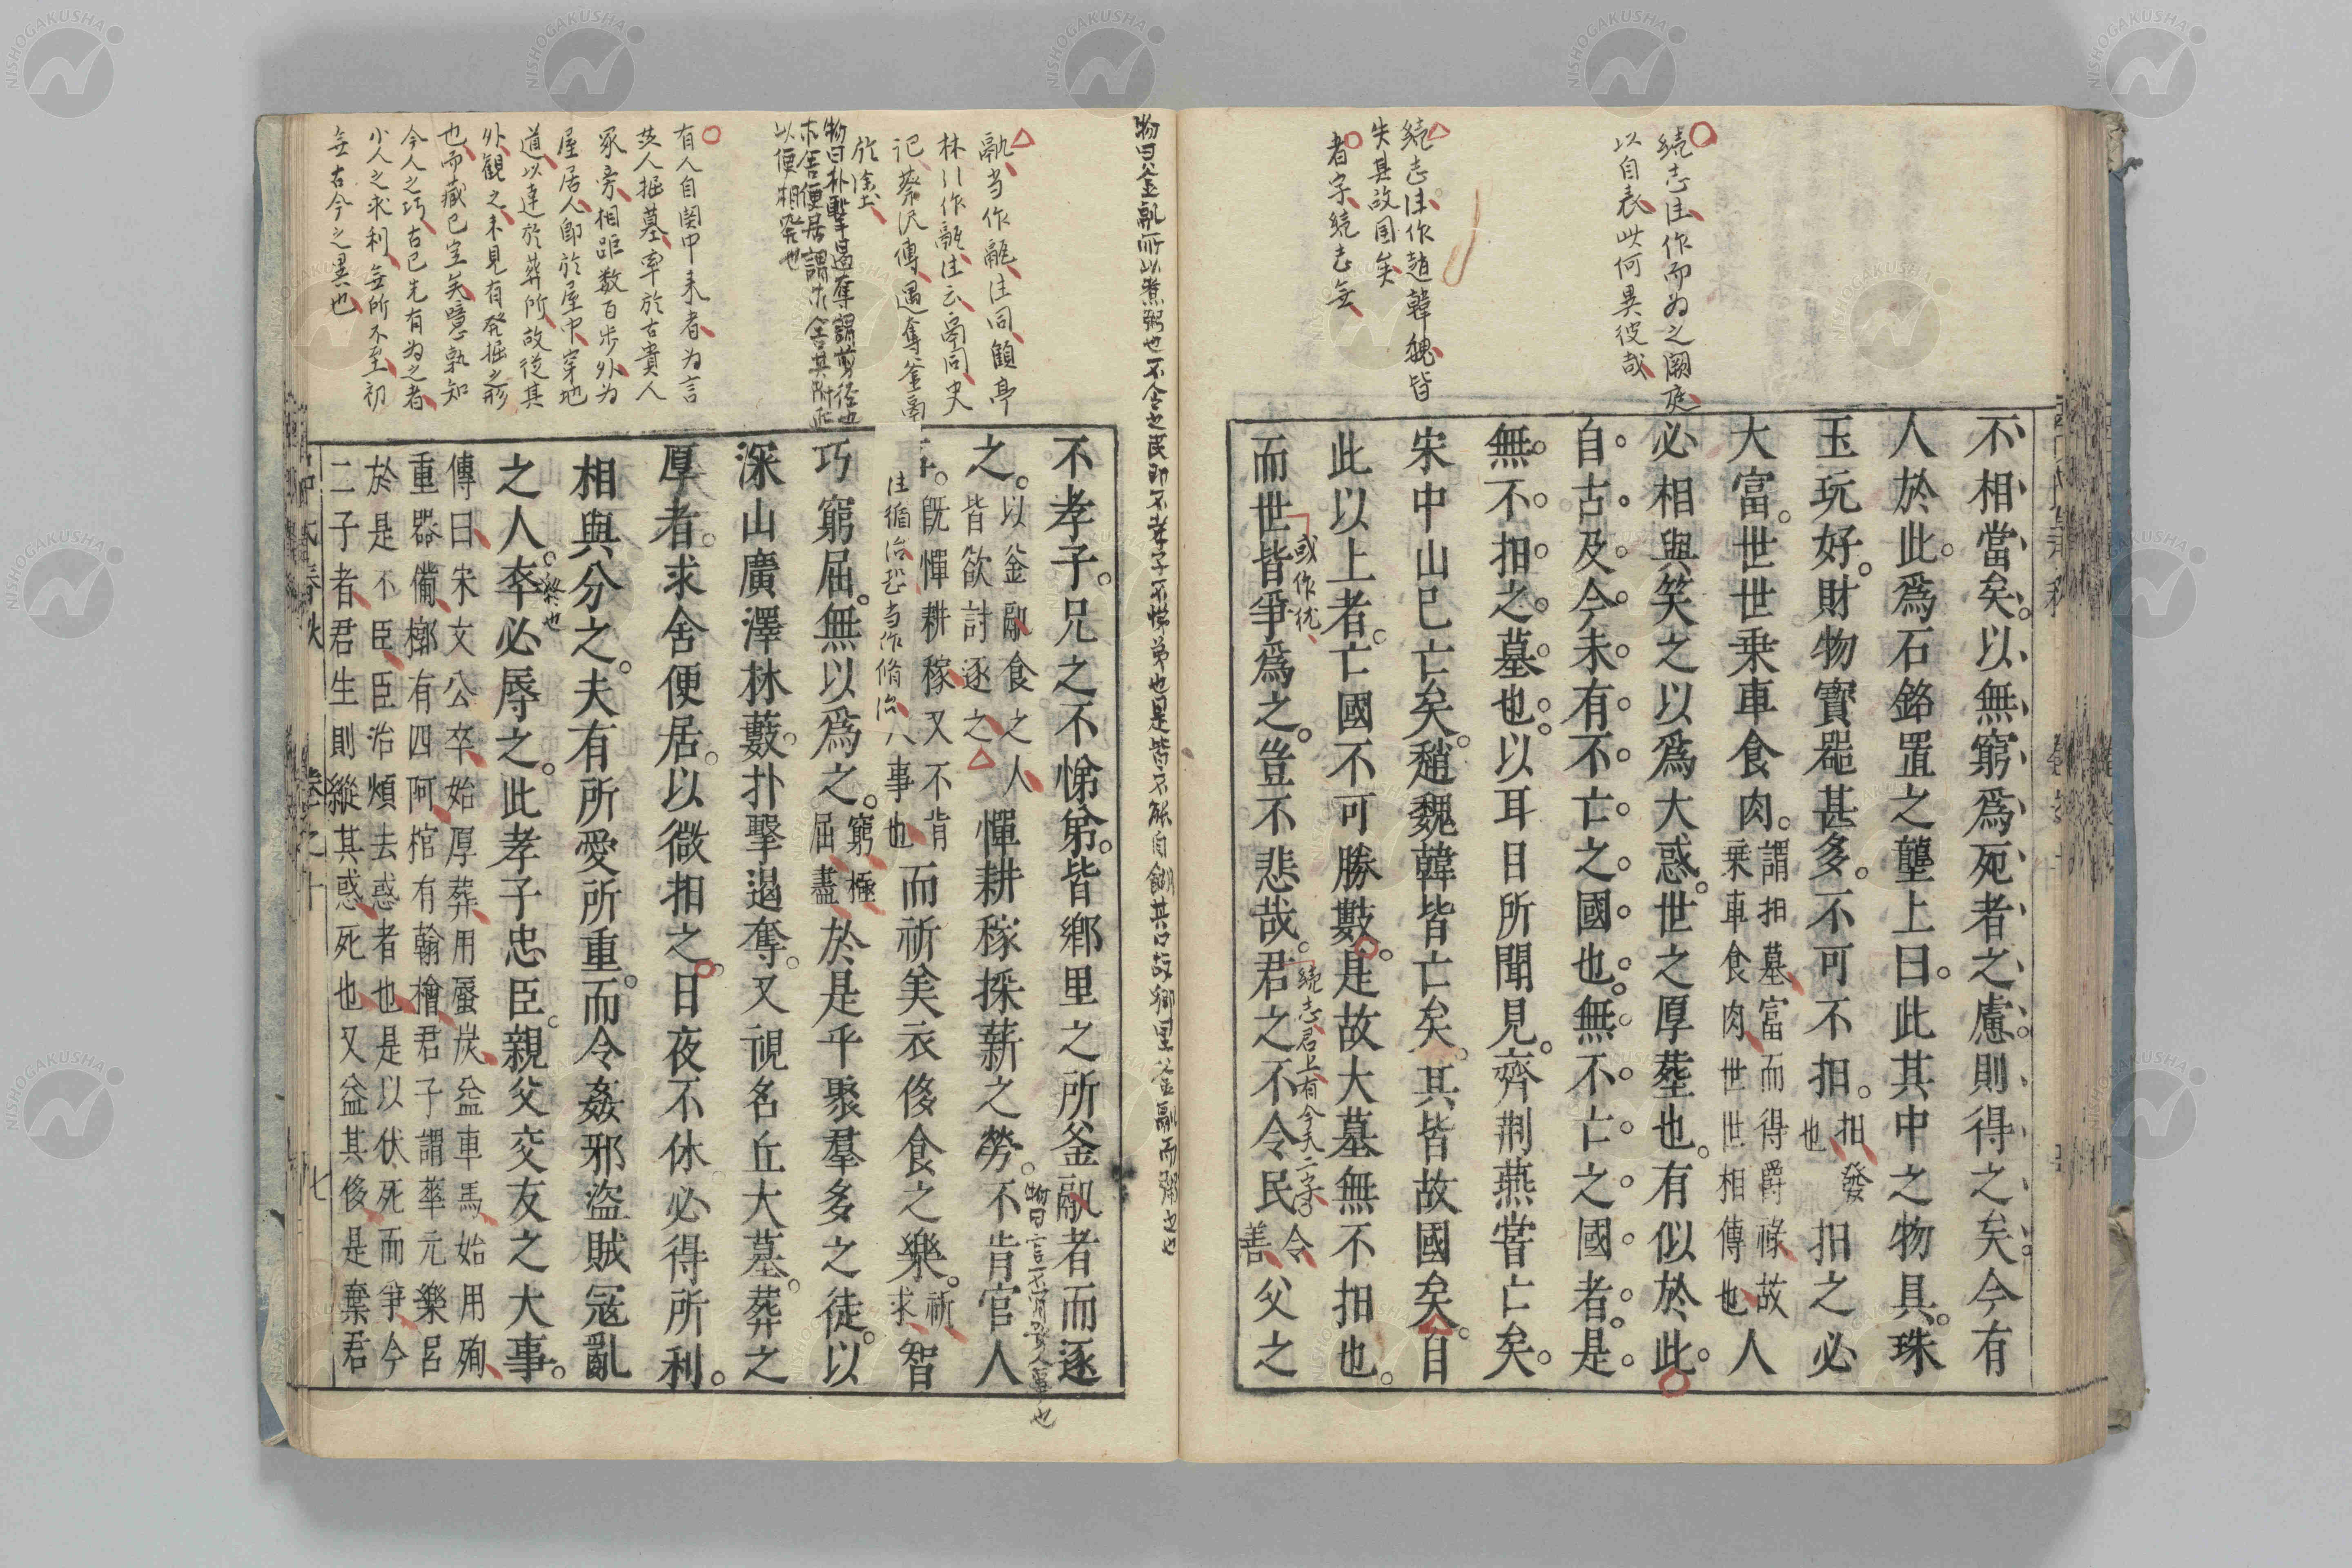 続志注作而為之闕庭
以自表此何異彼哉
続志注作趙韓魏皆
失其故国矣
者字続志無
不相當矣以無窮爲死者之慮則得之矣今有
人於此爲石銘置之壟上曰此其中之物具珠
玉玩好財物寶器甚多不可不抇抇發也抇之必
大富世世乗車食肉謂抇墓富而得爵祿故乗車食肉世世相傳也人
必相與笑之以爲大惑世之厚葬也有似於此
自古及今未有不亡之國也無不亡之國者是
無不抇之墓也以耳目所聞見齊荆燕嘗亡矣
宋中山已亡矣趙魏韓皆亡矣其皆故國矣自
此以上者亡國不可勝數是故大墓無不抇也
而世皆爭爲之豈不悲哉君之不令民令善父之
或作札
続志君上有今夫二字
物曰釜鬲所以煮粥也不令之民即不孝子不悌弟也是皆不能自餬其口故郷里釜鬲而粥之也
鬲当作䰛注同顧亭
林引作䰛注云鬲同史
記蔡沢傳遇奪釜鬲
於塗
物曰朴擊遏奪謂剪径也
求舍便居謂求舍其附近
以便相発也
有人自関中来者為言
茨人掘墓率於古貴人
冢旁相距数百歩外為
屋居人即於屋中穿地
道以達於葬所故従其
外観之未見有発掘之形
也而蔵已空矣噫孰知
今人之巧古已先有為之者
少人之求利無所不至初
無古今之異也
不孝子兄之不悌弟皆郷里之所釜鬲者而逐
之以釜鬲食之人皆欲討逐之憚耕稼採薪之勞不肯官人
事既憚耕稼又不肯八事也而祈美衣侈食之樂祈求智
巧窮屈無以爲之窮極屈盡於是乎聚羣多之徒以
深山廣澤林藪扑擊遏奪又視名丘大墓葬之
厚者求舍便居以微抇之日夜不休必得所利
相與分之夫有所愛所重而令姦邪盜賊冦亂
之人卒必辱之此孝子忠臣親父交友之大事
傳曰宋文公卒始厚葬用蜃炭益車馬始用殉
重器備椁有四阿棺有翰檜君子謂華元樂呂
於是不臣臣治煩去惑者也是以伏死而爭今
二子者君生則縦其惑死也又益其侈是棄君
注循治恐当作脩治
終也
七